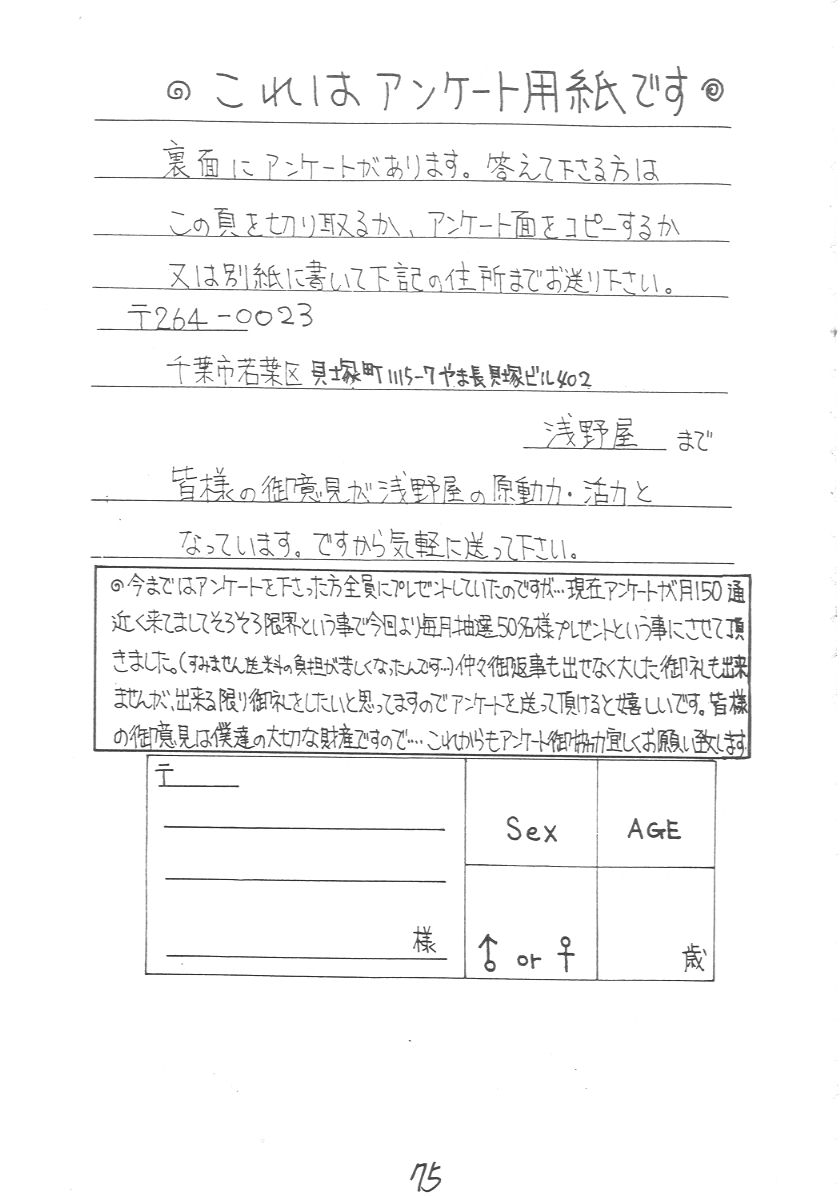 ◎ これはアンケート用紙です ◎
裏面にアンケートがあります。答えて下さる方は
この頁を切り取るか、アンケート面をコピーするか
又は別紙に書いて下記の住所までお送り下さい。
〒264-0023
千葉市若葉区貝塚町1115-7やま長貝塚ビル402
浅野屋 まで
皆様の御意見が浅野屋の原動力・活力と
なっています。ですから気軽に送って下さい。
◎今まではアンケートを下さった方全員にプレゼントしていたのですが…現在アンケートが月150通
近く来てましてそろそろ限界という事で今回より毎月抽選50名様プレゼントという事にさせて頂
きました。(すみません送料の負担が苦しくなったんです…)仲々御返事も出せなく大した御礼も出来
ませんが、出来る限り御礼をしたいと思ってますのでアンケートを送って頂けると嬉しいです。皆様
の御意見は僕達の大切な財産ですので…これからもアンケート御協力宜しくお願い致します
〒
Sex AGE
様 ♂ or ♀ 歳
75